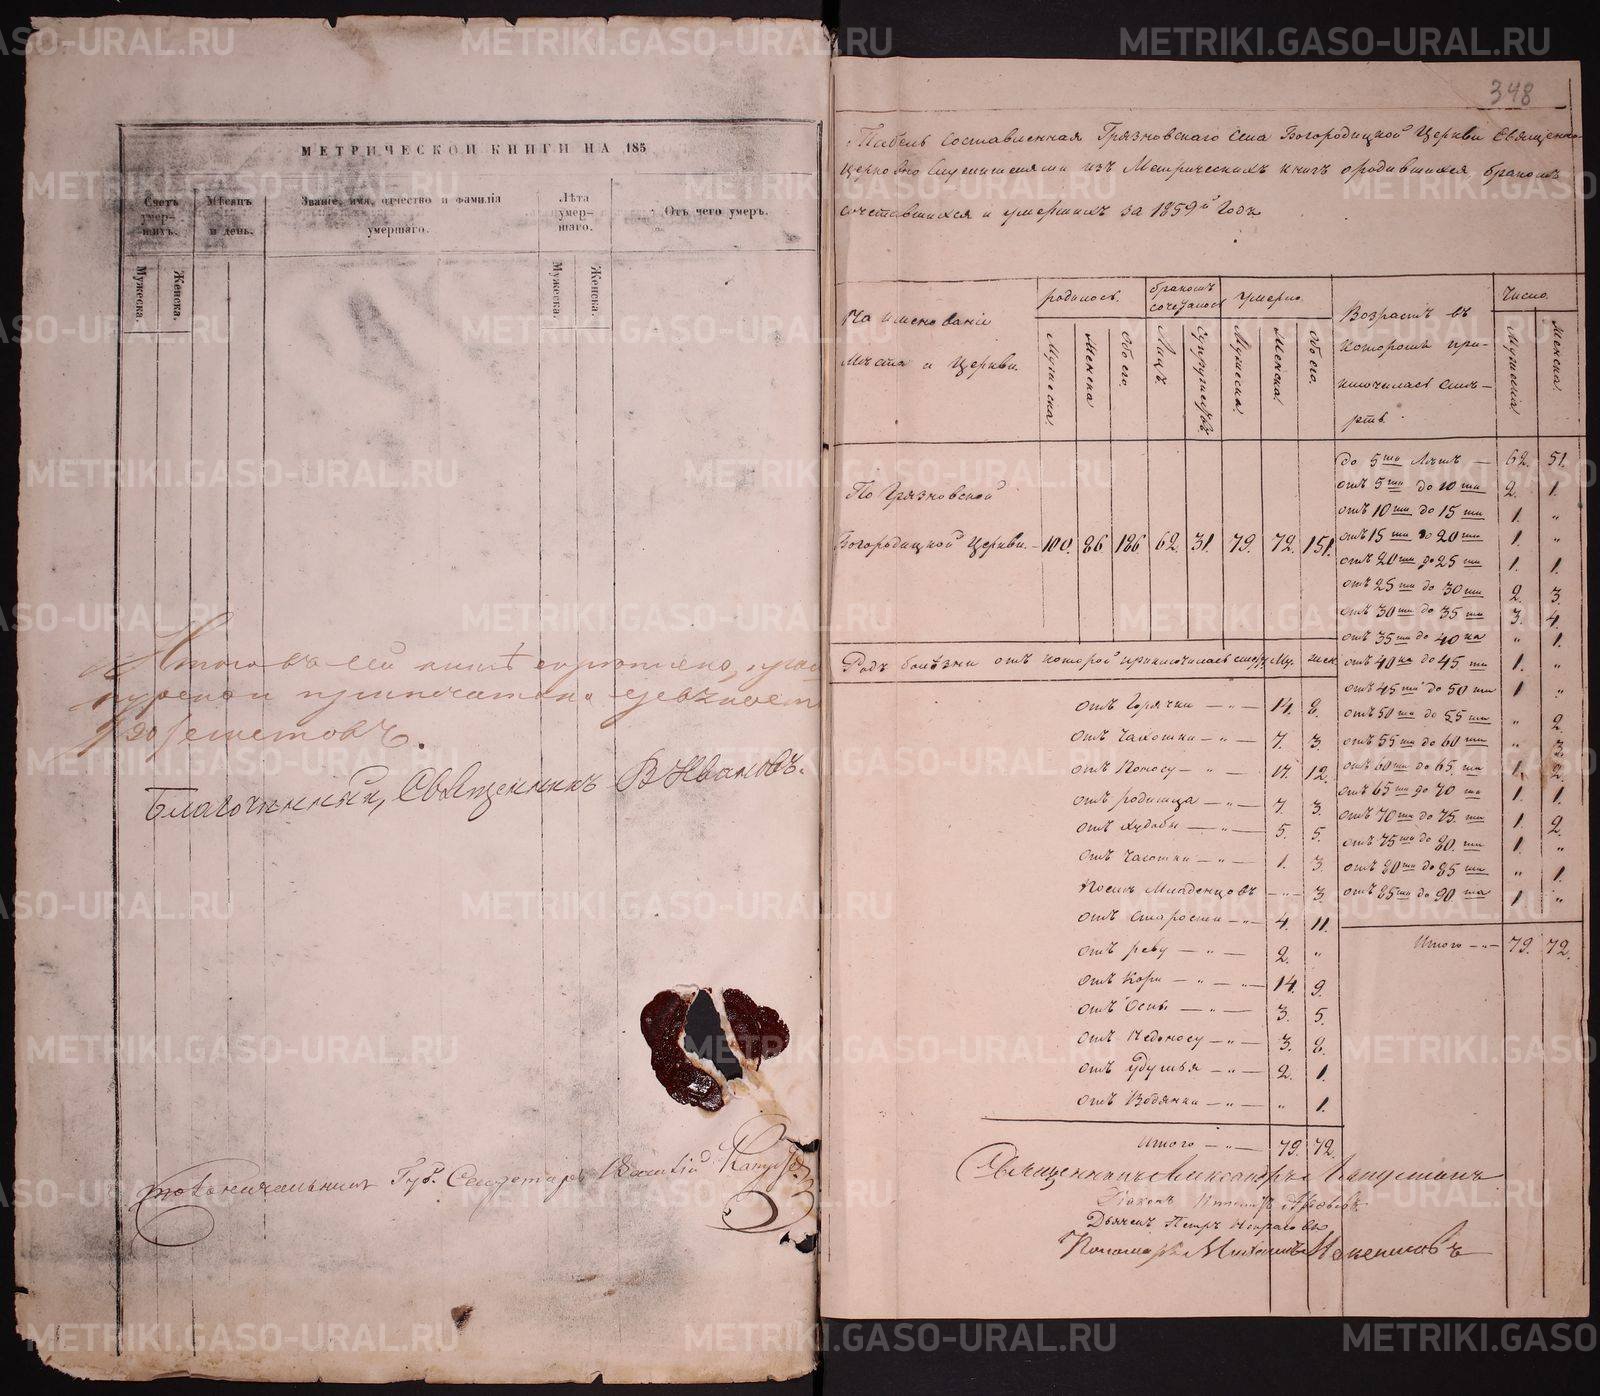 МЕТРИЧЕСКОЙ КНИГИ НА 185
Счетъ умер-шихъ.
Мѣсяцъ и день.
Званіе, имя, отчество и фамилія умершаго.
Лѣта умер-шаго.
Отъ чего умеръ.
Мужеска.
Женска.
Мужеска.
Женска.
Итого въ сей книгѣ
припечатано
/90/ листовъ.
Благочинный, Священникъ В Ивановъ.
Губ. Секретарь Василій
348
Табель составленная Грязновскаго Села Богородицкой Церкви Священно
церковно служителями изъ Метрическихъ книгъ о родившихся бракомъ
сочетавшихся и умершихъ за 1859й Годъ
Наименованіе
Мѣста и Церкви.
родилось.
бракомъ сочеталось
умерло.
Возрастъ въ
которомъ при-
ключилась сме-
рть.
Число.
Мужеска.
Женска
Обоего.
Лицъ.
Супружествъ.
Мужеска.
Женска.
Обоего.
Мужеска
Женска.
По Грязновской
Богородицкой Церкви. 100. 86 186 62. 31. 79. 72. 151.
до 5ти лѣтъ — 62. 51.
отъ 5ти до 10ти 2. 1.
отъ 10ти до 15ти 1. "
отъ 15ти до 20ти 1. "
отъ 20ти до 25ти 1. 1.
отъ 25ти до 30ти 2. 3.
отъ 30ти до 35ти 3. 4.
отъ 35ти до 40ка " 1.
отъ 40ка до 45ти 1. "
отъ 45ти до 50ти 1 "
отъ 50ти до 55ти " 2.
отъ 55ти до 60ти " 3.
отъ 60ти до 65ти 1. 2.
отъ 65ти до 70ти 1. 1.
отъ 70ти до 75ти 1 2.
отъ 75ти до 80ти 1. "
отъ 80ти до 85ти " 1.
отъ 85ти до 90та 1 "
Итого — " — 79. 72.
Родъ болѣзни отъ которой приключилась смерть Му. жен.
отъ Горячки — " — 14. 8.
отъ Чахотки — " — 7. 3.
отъ Поносу — " — 17. 12.
отъ родимца — " — 7. 3.
отъ Худобы — " — 5. 5.
отъ Чахотки — " — 1. 3.
Посли Младенцовъ — " — 3.
отъ Старости — " — 4. 11.
отъ реву — " — 2. "
отъ Кори — " — " — 14. 9.
отъ Оспы — " — 3. 5.
отъ Недоносу — " — 3. 8.
отъ Удушья — " — 2. 1.
отъ Водянки — " — " 1.
Итого — " — 79. 72.
Священникъ Александръ Капустинъ
Діаконъ
Дьячекъ Петръ Некрасовъ
Пономарь Михаилъ
METRIKI.GASO-URAL.RU